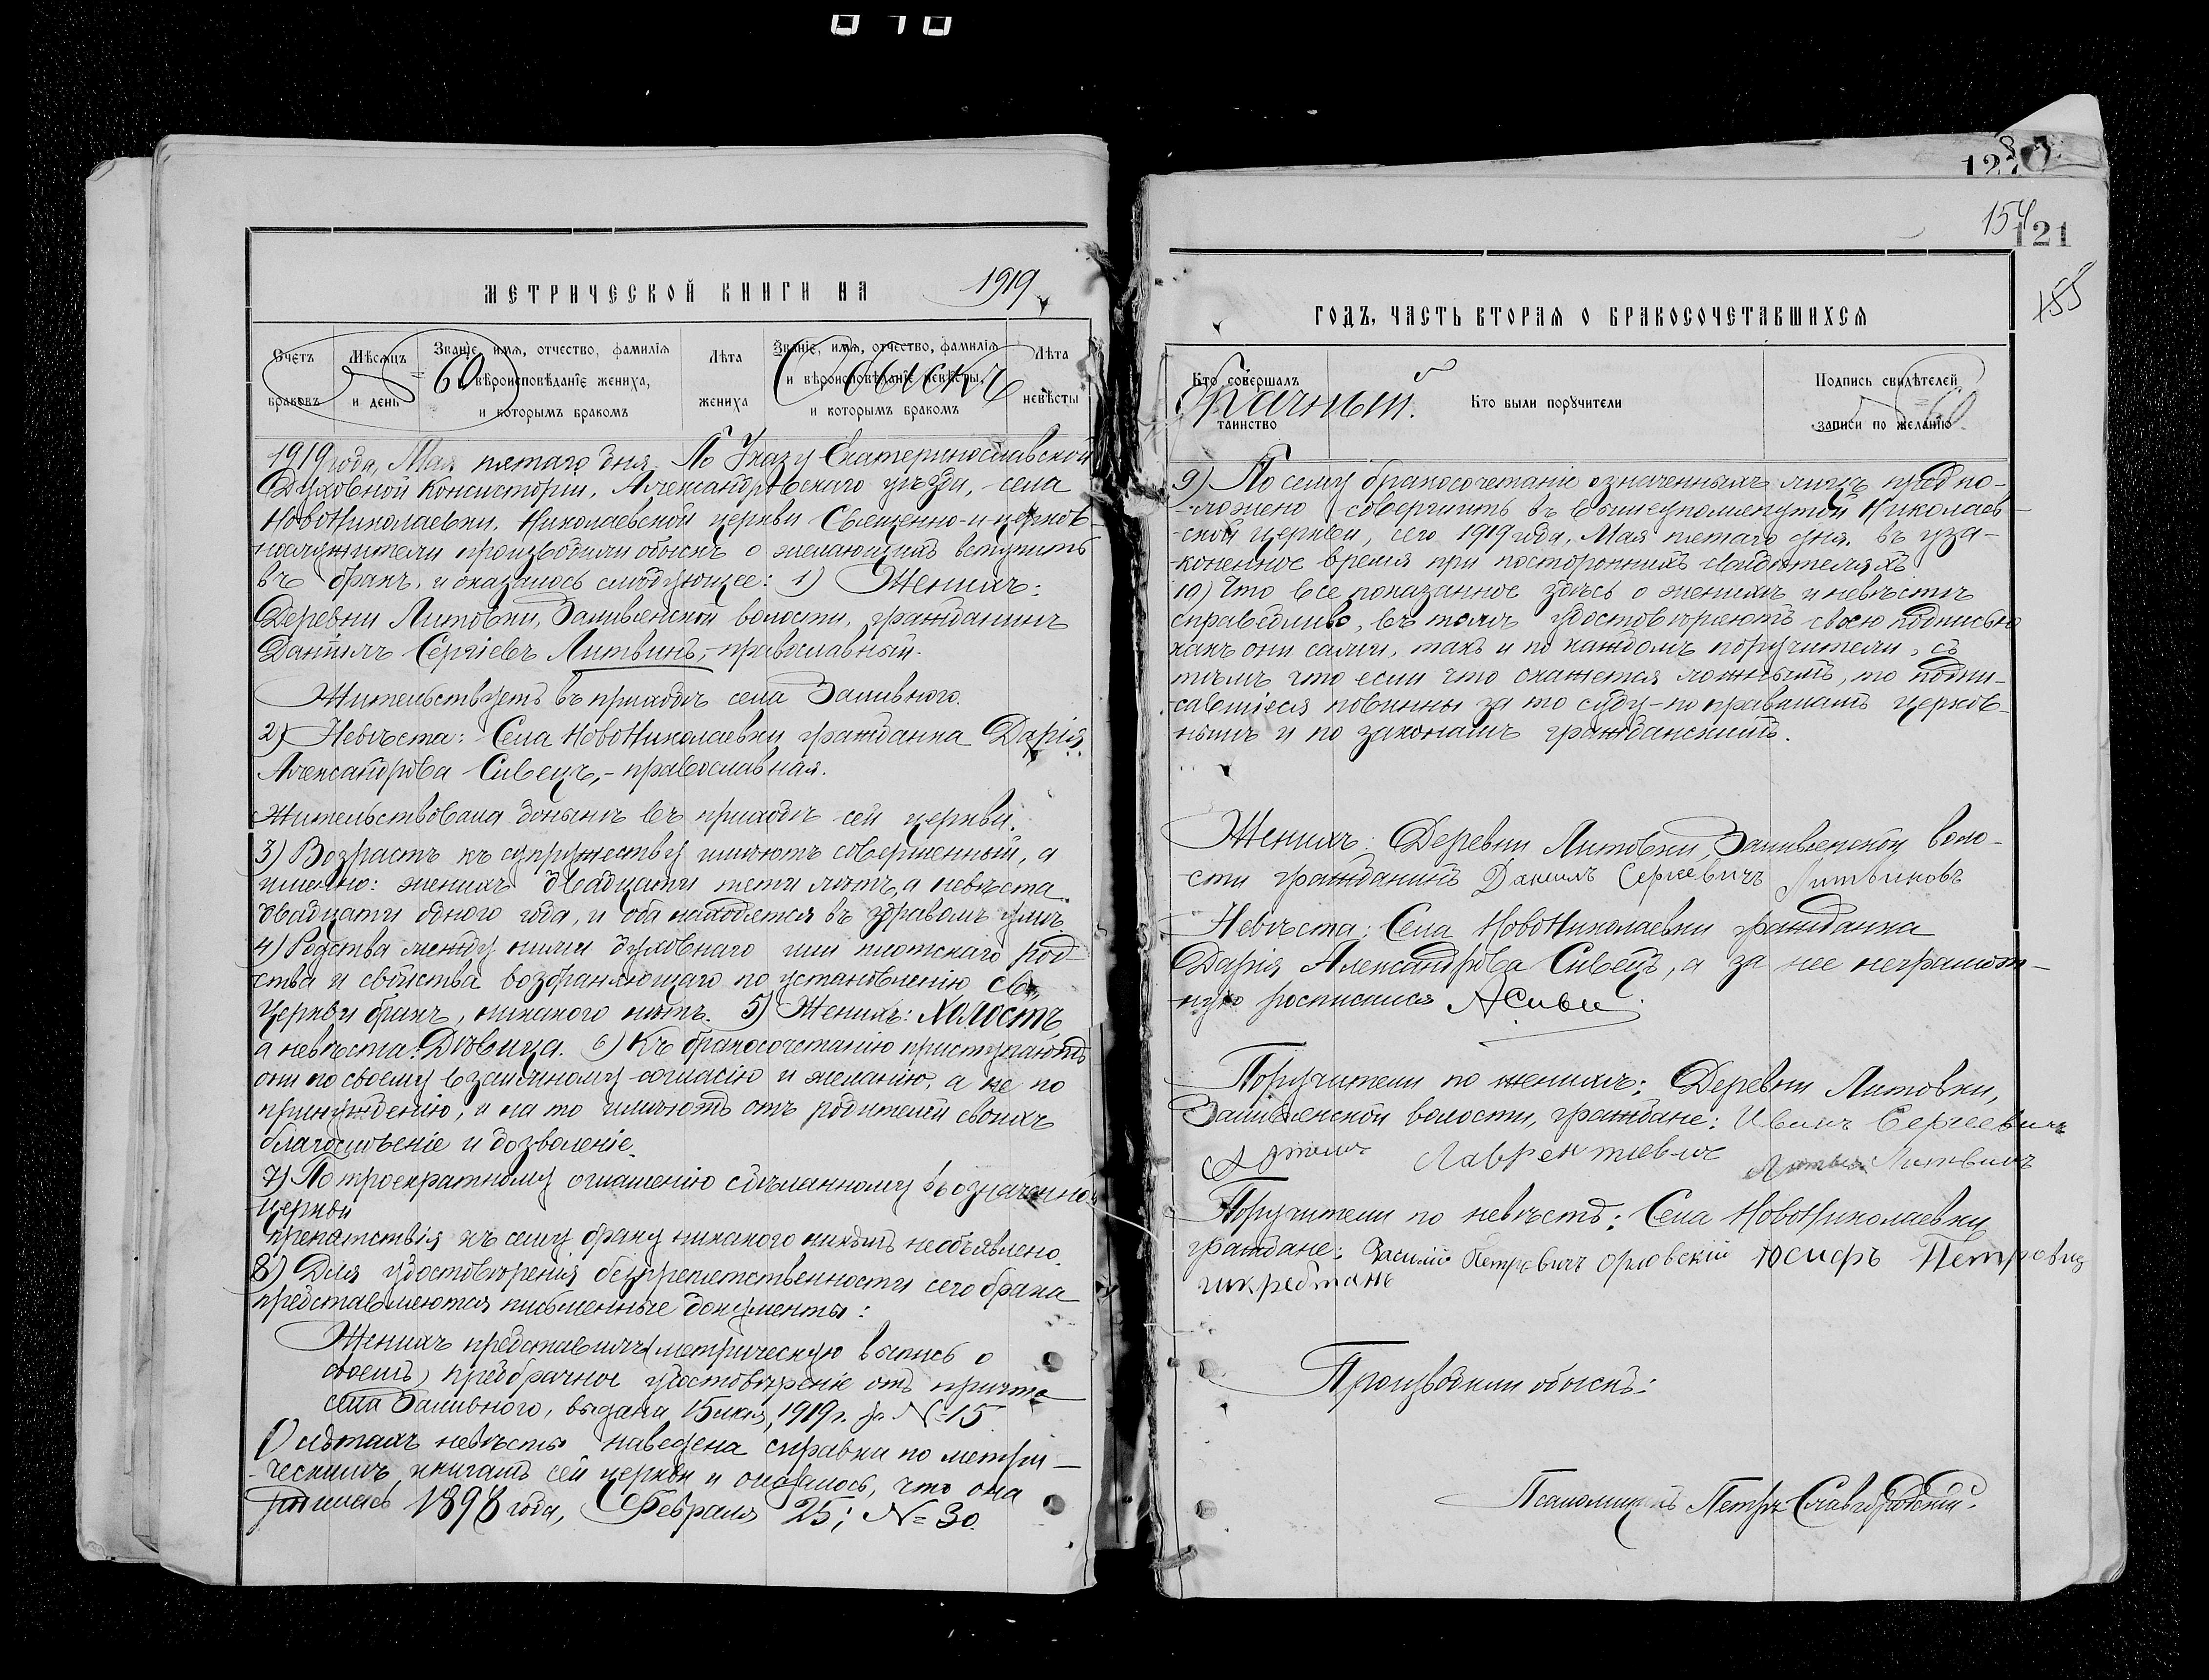 МЕТРИЧЕСКОЙ КНИГИ НА 1919
Счетъ браковъ
Мѣсяцъ и день
Званіе, имя, отчество, фамилія и вѣроисповѣданіе жениха, и которымъ бракомъ
Лѣта жениха
Званіе, имя, отчество, фамилія и вѣроисповѣданіе невѣсты, и которымъ бракомъ
Лѣта невѣсты
= 60 Обыскъ
1919 года, Мая пятаго дня. По Указу Екатеринославской
Духовной Консисторіи, Александровскаго уѣзда, села
НовоНиколаевки, Николаевской церкви Священно-и-церков-
нослужители производили обыскъ о желающихъ вступить
въ бракъ, и оказалось слѣдующее: 1) Женихъ:
Деревни Литовки, Заливенской волости, гражданинъ
Даніилъ Сергіевъ Литвинъ,- православный.
Жительствуетъ въ приходѣ села Заливного.
2) Невѣста: Села НовоНиколаевки гражданка Дарія
Александрова Сивецъ,- православная.
Жительствовала донынѣ въ приходѣ сей церкви.
3) Возрастъ къ супружеству имѣютъ совершенный, а
именно: женихъ двадцати пяти лѣтъ, а невѣста
двадцати одного года, и оба находятся въ здравомъ умѣ
4) Родства между ними духовнаго или плотскаго род-
ства и свойства возбраняющаго по установленію Св.
Церкви бракъ, никакого нѣтъ. 5) Женихъ: Холостъ,
а невѣста: Дѣвица. 6) Къ бракосочетанію приступаютъ
они по своему взаимному согласію и желанію, а не по
принужденію, и на то имѣютъ отъ родителей своихъ
благословеніе и дозволеніе.
7) По троекратному оглашенію сдѣланному въ означенной
церкви
препятствія къ сему браку никакого никѣмъ необъявлено.
8) Для удостовѣренія безпрепятственности сего брака
представляются письменные документы:
Женихъ представилъ (метрическую выпись о
своемъ) предбрачное удостовѣреніе отъ причта
села Заливного, выдана 15 мая, 1919 г. за № 15
О лѣтахъ невѣсты наведена справка по метри-
ческимъ книгамъ сей церкви и оказалось, что она
родилась 1898 года, Февраля 25; № 30.
127
154
121
155
ГОДЪ, ЧАСТЬ ВТОРАЯ О БРАКОСОЧЕТАВШИХСЯ
Кто совершалъ таинство
Кто были поручители
Подпись свидѣтелей записи по желанію
Брачный. = 60
9) По сему бракосочетаніе означенныхъ лицъ предпо-
-ложено совершить въ вышеупомянутой Николаев-
-ской церкви, сего 1919 года, Мая пятаго дня, въ уза-
-коненное время при постороннихъ свидѣтеляхъ
10) Что все показанное здѣсь о женихѣ и невѣстѣ
справедливо, въ томъ удостовѣряютъ своею подписью
какъ они сами, такъ и по каждомъ поручители, съ
тѣмъ что если что окажется ложнымъ, то подпи-
савшіеся повинны за то суду-по правиламъ церков-
нымъ и по законамъ гражданскимъ.
Женихъ: Деревни Литовки, Заливенской воло-
сти гражданинъ Данилъ Сергеевичъ Литвиновъ
Невѣста: Села НовоНиколаевки гражданка
Дарія Александрова Сивецъ, а за нее неграмот-
ную росписался АСивец
Поручители по женихѣ: Деревни Литовки,
Заливенской волости, граждане: Иванъ Сергеевичъ
Лаврентіевичъ Литвинъ
Поручители по невѣстѣ: Села НовоНиколаевки
граждане: Василій Петровичъ Орловскій Юсифъ Петровиц
Производили обыскъ:
Псаломщикъ Петръ Славгородскій.